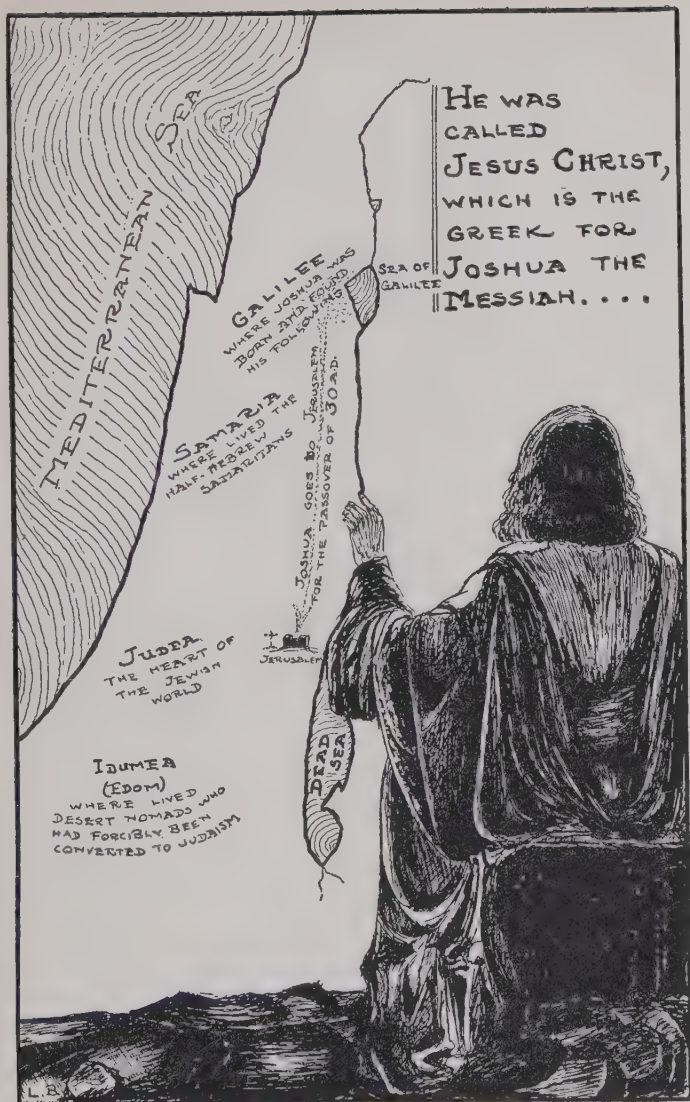 HE WAS
CALLED
JESUS CHRIST,
WHICH IS THE
GREEK FOR
JOSHUA THE
MESSIAH....
MEDITERRANEAN
SEA
GALILEE
WHERE JOSHUA WAS
BORN AND FOUND
HIS FOLLOWING
SEA OF
GALILEE
SAMARIA
WHERE LIVED THE
HALF-HEBREW
SAMARITANS
JOSHUA GOES TO JERUSALEM
FOR THE PASSOVER OF 30 A.D.
JERUSALEM
JUDEA
THE HEART OF
THE JEWISH
WORLD
DEAD
SEA
IDUMEA
(EDOM)
WHERE LIVED
DESERT NOMADS WHO
HAD FORCIBLY BEEN
CONVERTED TO JUDAISM
L.B.